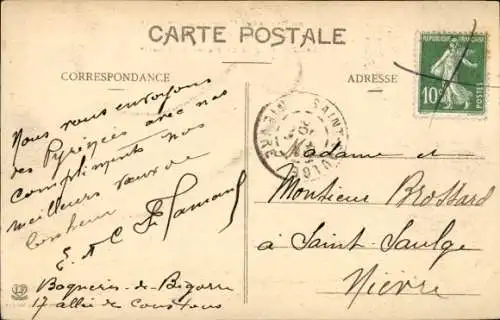 CARTE POSTALE
CORRESPONDANCE
ADRESSE
REPUBLIQUE FRANÇAISE
10c
POSTES
SAINT
NIEVRE
Nous vous envoyons
des Pyrénées avec nos
compliments nos
meilleurs vœux de
bonheur
E. & C
Bagnères-de-Bigorre
17 allée de Coustous
Madame et
Monsieur Brossard
à Saint-Saulge
Nièvre